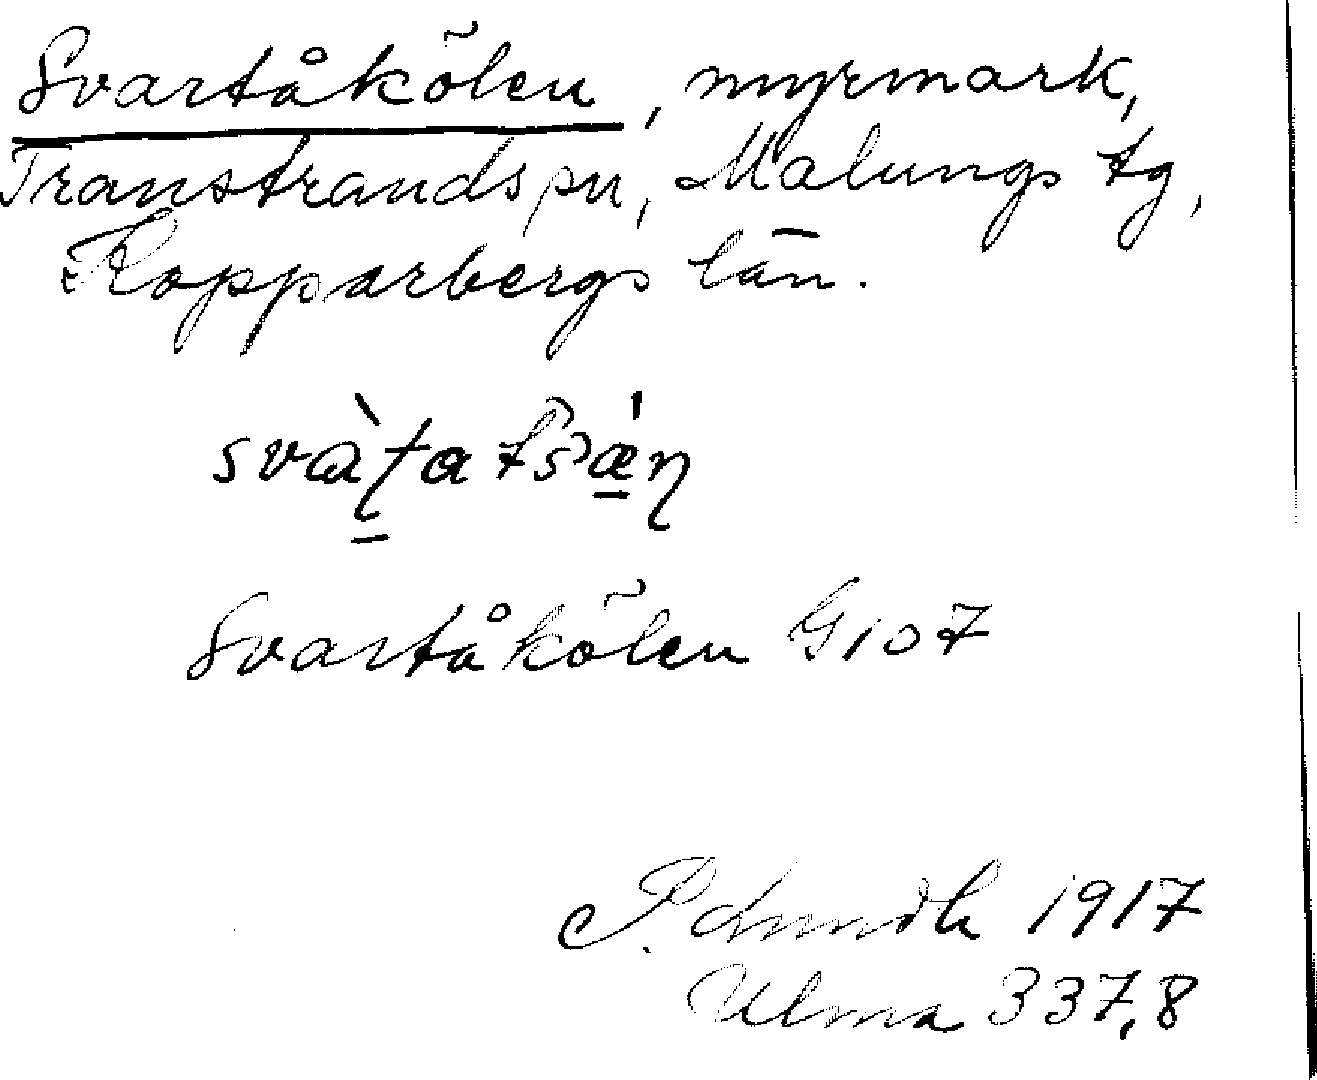 Svartåkölen, myrmark,
Transtrands sn, Malungs tg,
Kopparbergs län.
Svartåkölen G107
1917
Ulma 337,8